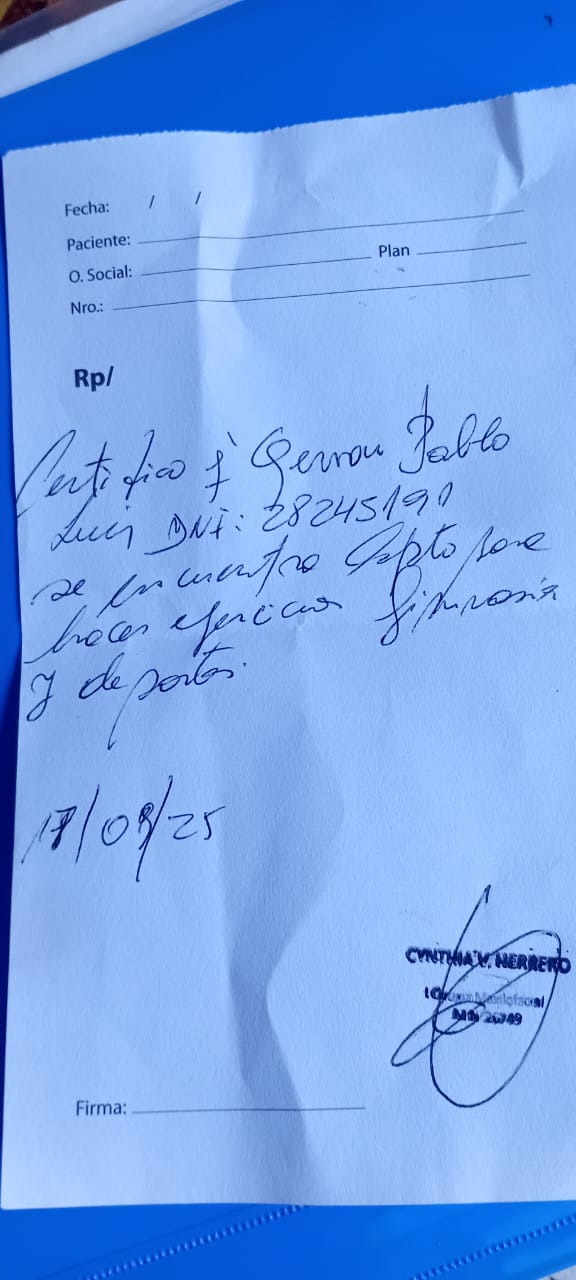 Fecha: / /
Paciente:
O. Social: Plan
Nro.:
Rp/
Certifico q' Pablo
Luis DNI: 28245191
se encuentra Apto para
hacer ejercicios gimnasia
y deportes.
17/09/25
CYNTHIA V. HERRERO
Maxilofacial
26749
Firma: